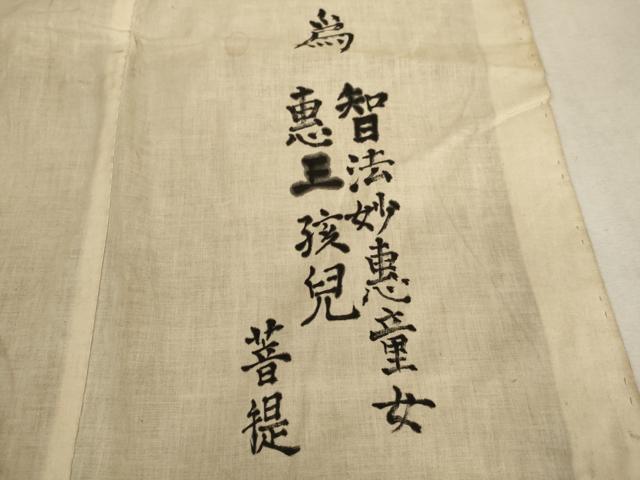 為
智法妙惠童女
惠王孩兒
菩提